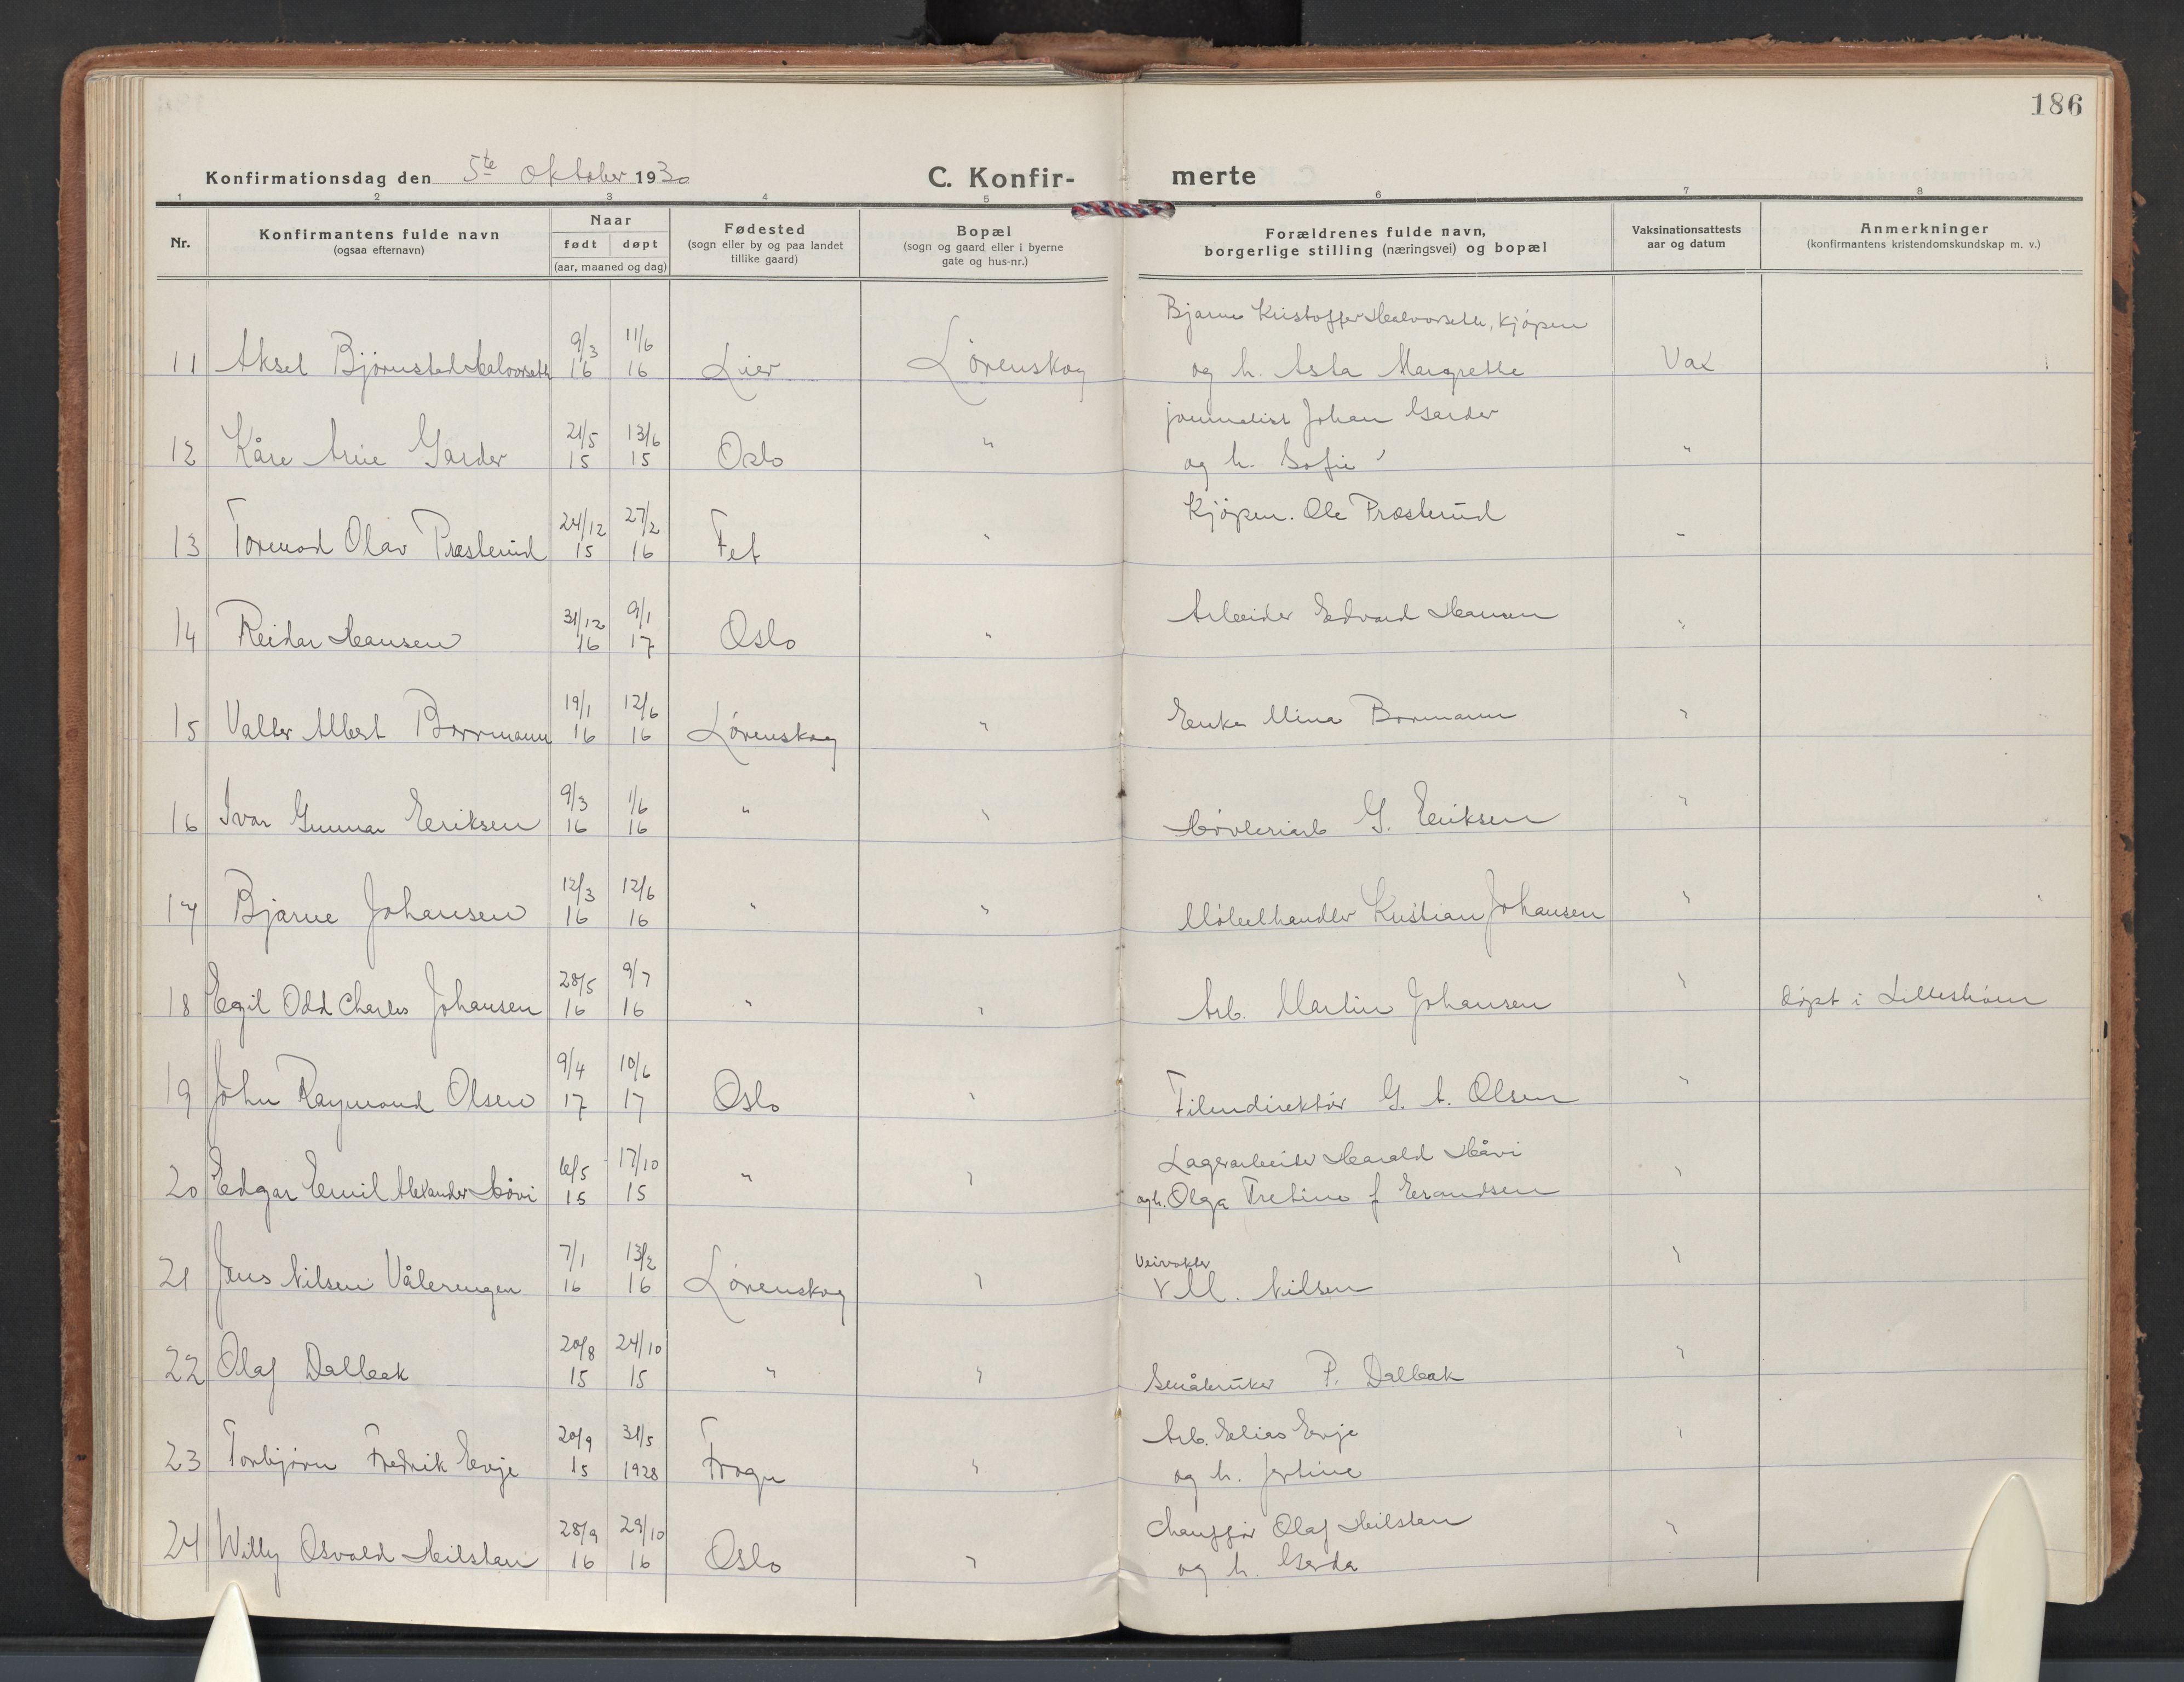 186
Konfirmationsdag den 5te Oktober 1930
C. Konfir- merte
1 2 3 4 5 6 7 8
Nr.
Konfirmantens fulde navn
(ogsaa efternavn)
Naar
født døpt
(aar, maaned og dag)
Fødested
(sogn eller by og paa landet
tillike gaard)
Bopæl
(sogn og gaard eller i byerne
gate og hus-nr.)
Forældrenes fulde navn,
borgerlige stilling (næringsvei) og bopæl
Vaksinationsattests
aar og datum
Anmerkninger
(konfirmantens kristendomskundskap m. v.)
9/3 11/6 Bjarne Kristoffer Halvorseth, Kjøpm
11 Aksel Bjørnstad Halvorseth 16 16 Lier Lørenskog og h. Asta Margrethe Vax
21/5 13/6 journalist Johan Garder
12 Kåre Arne Garder 15 15 Oslo " og h. Sofie "
24/12 27/2 Kjøpm. Ole Præsterud
13 Tormod Olav Præsterud 15 16 Fet " "
31/12 9/1 Arbeider Edvard Hansen
14 Reidar Hansen 16 17 Oslo " "
19/1 12/6 Enke Mina Bormann
15 Valter Albert Borrmann 16 16 Lørenskog " "
9/3 1/6
16 Ivar Gunnar Eriksen 16 16 " " Høvleriarb G. Eriksen "
12/3 12/6
17 Bjarne Johansen 16 16 " " Møbelhandler Kristian Johansen "
28/5 9/7
18 Egil Odd Charles Johansen 16 16 " " Arb. Martin Johansen " døpt i Lillestrøm
9/4 10/6
19 John Raymond Olsen 17 17 Oslo " Filmdirektør G. A. Olsen "
6/5 17/10 Lagerarbeider Harald Håvi
20 Edgar Emil Alexander Høvi 15 15 " " og h. Olga Tretine f Erandsen "
7/1 13/2 Veivokter
21 Jens Nilsen Vålerengen 16 16 Lørenskog " V M. Nilsen "
20/8 24/10
22 Olaf Dalbak 15 15 " " Småbruker P. Dalbak "
20/9 31/5 Arb. Elias Evje
23 Torbjørn Fredrik Evje 15 1928 Frogn " og h. Jertine "
28/9 29/10 Chauffør Olaf Milsten
24 Willy Osvald Milsten 16 16 Oslo " og h. Gerda "